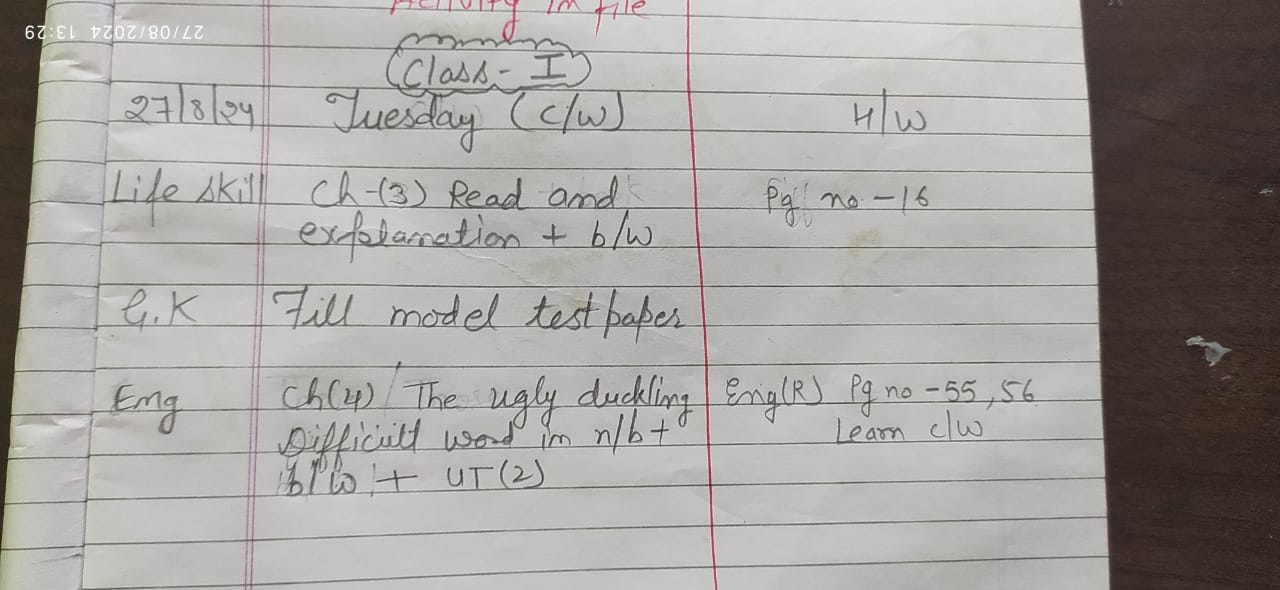 Activity in file
27/08/2024 13:29
Class - I
27/8/24 Tuesday (c/w) H/W
Life skill Ch-(3) Read and Pg no - 16
explanation + b/w
G.K Fill model test paper
Eng Ch(4) The ugly duckling Eng(R) Pg no - 55, 56
Difficult word in n/b + Learn c/w
b/w + UT (2)